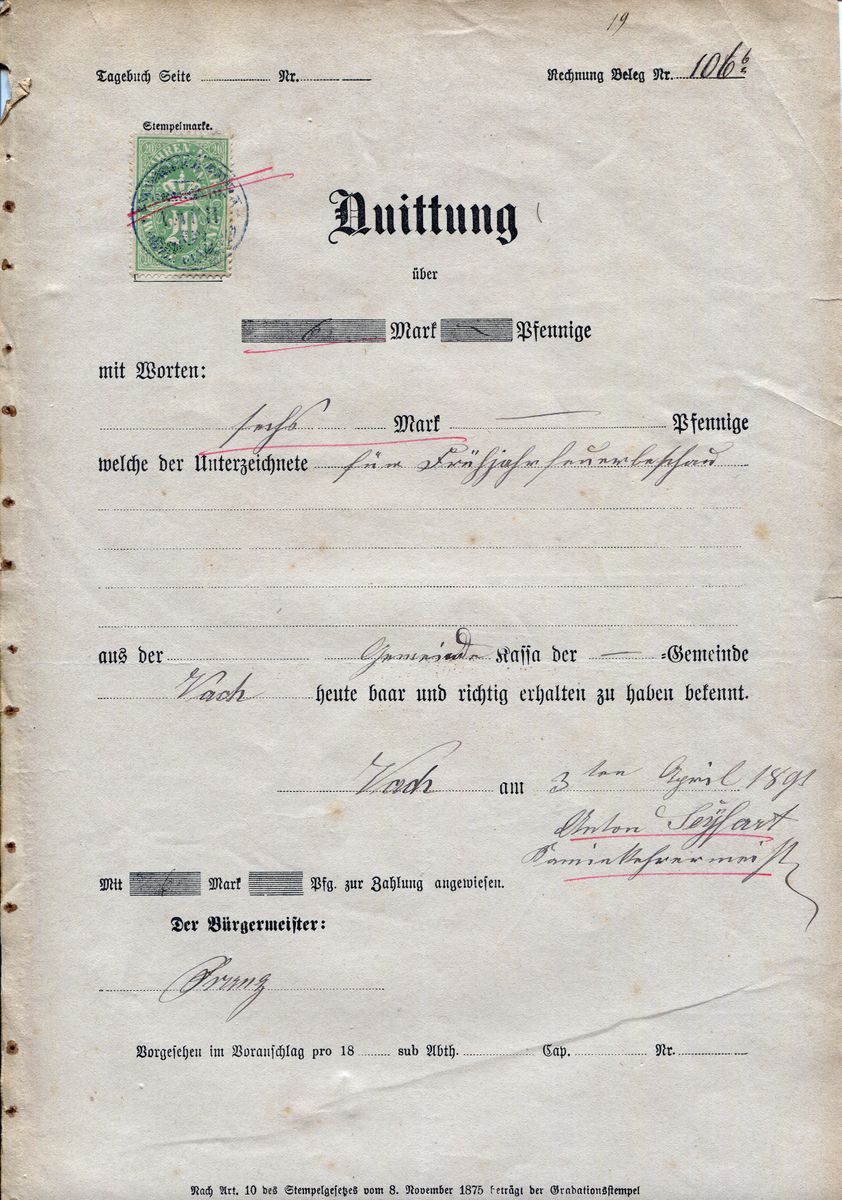 19
Tagebuch Seite Nr. Rechnung Beleg Nr. 106 b
Stempelmarke.
20
Quittung
über
6 Mark — Pfennige
mit Worten:
sechs Mark — Pfennige
welche der Unterzeichnete für Frühjahrfeuerbeschau
aus der Gemeinde Kassa der — =Gemeinde
Vach heute baar und richtig erhalten zu haben bekennt.
Vach am 3ten April 1891
Anton
Kaminkehrermeist
Mit 6 Mark Pfg. zur Zahlung angewiesen.
Der Bürgermeister:
Vorgesehen im Voranschlag pro 18 sub Abth. Cap. Nr.
Nach Art. 10 des Stempelgesetzes vom 8. November 1875 beträgt der Gradationsstempel